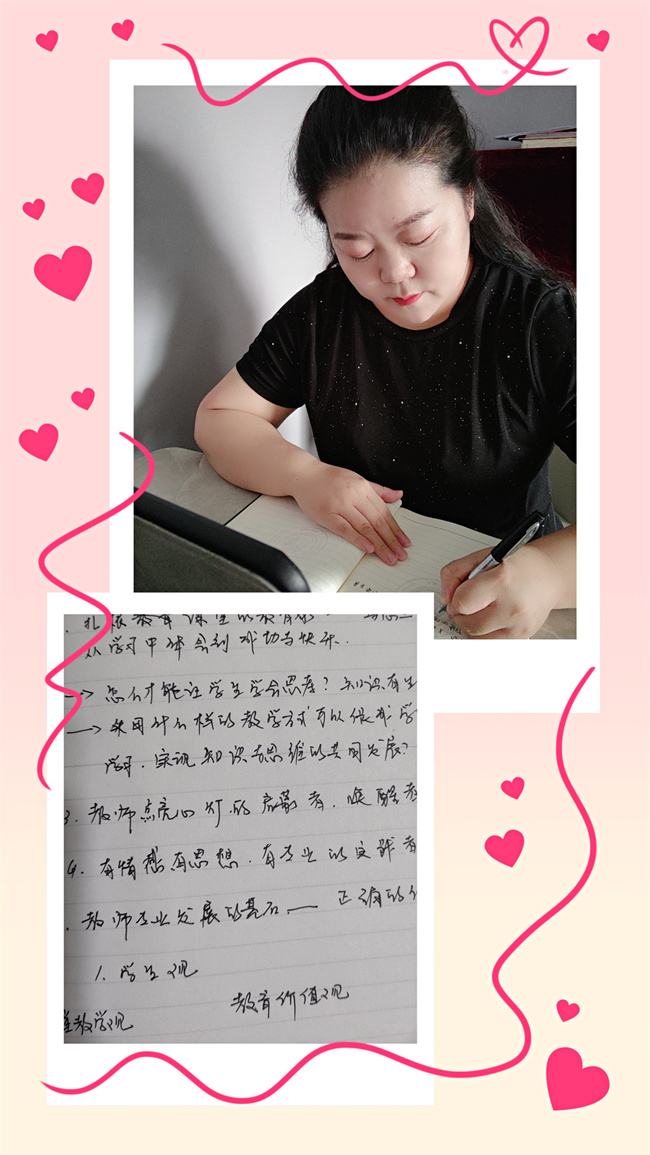 扎根教育课堂的教育
从学习中体会到成功与快乐.
→ 怎么才能让学生学会思考？知识有生
→ 采用什么样的教学方式可以促进学
学习. 实现知识与思维的共同发展？
3. 教师点亮心灯的启蒙者. 唤醒者
4. 有情感有思想. 有专业的实践者
. 教师专业发展的基石—— 正确的
1. 学生观
教育价值观
教学观